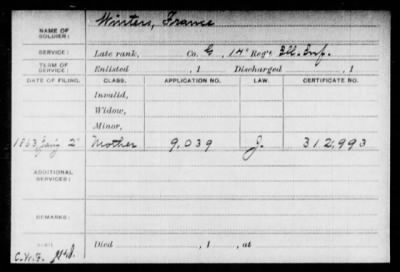 NAME OF SOLDIER: Winters, France
SERVICE: Late rank, Co. G, 14" Reg't Ill. Inf.
TERM OF SERVICE: Enlisted , 1 Discharged , 1
DATE OF FILING. CLASS. APPLICATION NO. LAW. CERTIFICATE NO.
Invalid,
Widow,
Minor,
1863 Jan'y 2" Mother 9,039 J. 312,993
ADDITIONAL SERVICES:
REMARKS:
Died , 1 , at